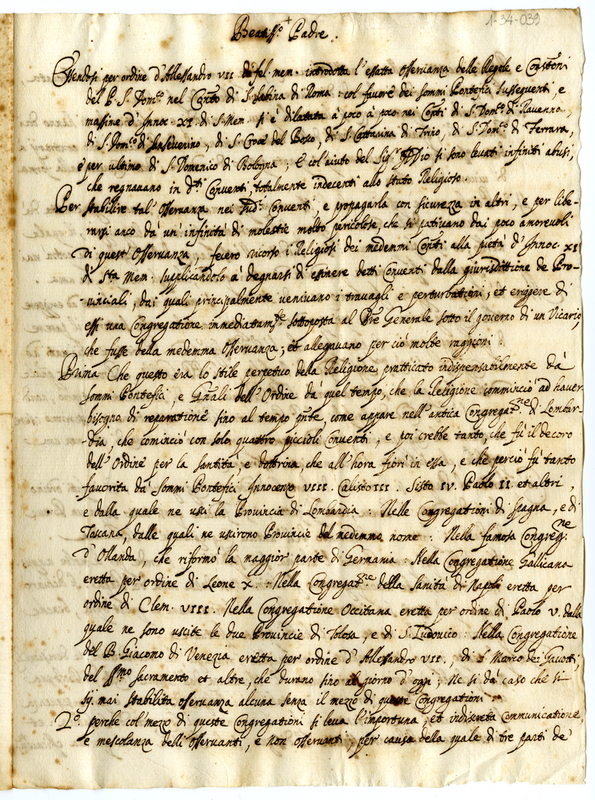 1-34-039
Beatiss.o Padre.
Essendosi per ordine d'Alessandro VII di fel. mem. introdotta l'esatta osservanza delle Regole e Constoni
del P. S. Dom.co nel Con.to di S. Sabina di Roma, col favore dei sommi Pontefici susseguenti, e
massime d'Innoc. XI di S. Mem. si è dilatata à poco à poco nei Con.ti di S. Dom.co di Ravenna,
di S. Dom.co di Sanseverino, di S. Croce del Bosco, di S. Cattarina di Trino, di S. Dom.co di Ferrara,
e per ultimo di S. Domenico di Bologna; E col'aiuto del Sig.re Iddio si sono levati infiniti abusi,
che regnavano in d.ti Conventi, totalmente indecenti allo stato Religioso.
Per stabilire tal'osservanza nei sud.ti Conventi e propagarla con sicurezza in altri, e per libe-
rarsi anco da un'infinità di molestie molto pericolose, che si pativano dai poco amorevoli
di quest'osservanza, fecero ricorso i Religiosi dei medemmi Con.ti alla pietà d'Innoc. XI
di S.ta Mem. supplicandolo à degnarsi di esimere detti Conventi dalla giurisdittione de Pro-
-vinciali, dai quali principalmente venivano i travagli e perturbationi, et erigere di
essi una Congregatione immediatam.te sottoposta al P.re Generale sotto il governo di un Vicario,
che fusse della medemma osservanza; et allegavano per ciò molte raggioni:
Prima Che questo era lo stile perpetuo della Religione, pratticato indispensabilmente dà
sommi Pontefici, e Gñali dell'Ordine da quel tempo, che la Religione comminciò ad haver
bisogno di reparatione sino al tempo pñte, come appare nell'antica Congregaz.ne di Lombar-
-dia, che comincio con solo quattro piccioli Conventi, e poi crebbe tanto, che fù il decoro
dell'Ordine per la santita, e dottrina, che all'hora fiorì in essa, e che perciò fù tanto
favorita da sommi Pontefici Innocenzo VIII. Calisto III. Sisto IV. Paolo II. et altri
e dalla quale ne uscì la Provincia di Lombardia: Nelle Congregationi di Spagna, e di
Toscana, dalle quali ne usirono Provincie del medemmo nome: Nella famosa Congreg.ne
d'Olanda, che riformò la maggior parte di Germania: Nella Congregatione Gallicana
eretta per ordine di Leone X. Nella Congregat.ne della Sanità di Napoli eretta per
ordine di Clem. VIII. Nella Congregatione Occitana eretta per ordine di Paolo V. dalla
quale ne sono uscite le due Provincie di Tolosa, e di S. Ludovico: Nella Congregatione
del B. Giacomo di Venezia eretta per ordine d'Alessandro VII., di S. Marco dei
del SS.mo Sacramento et altre, che durano sino al giorno d'oggi; Ne si dà caso che si
sij mai stabilita osservanza alcuna senza il mezzo di queste Congregationi.
2.o perche col mezo di queste Congregationi si leva l'importuna, et indiscreta communicatione,
e mescolanza delli osservanti, e non osservanti, per causa della quale di tre parti de